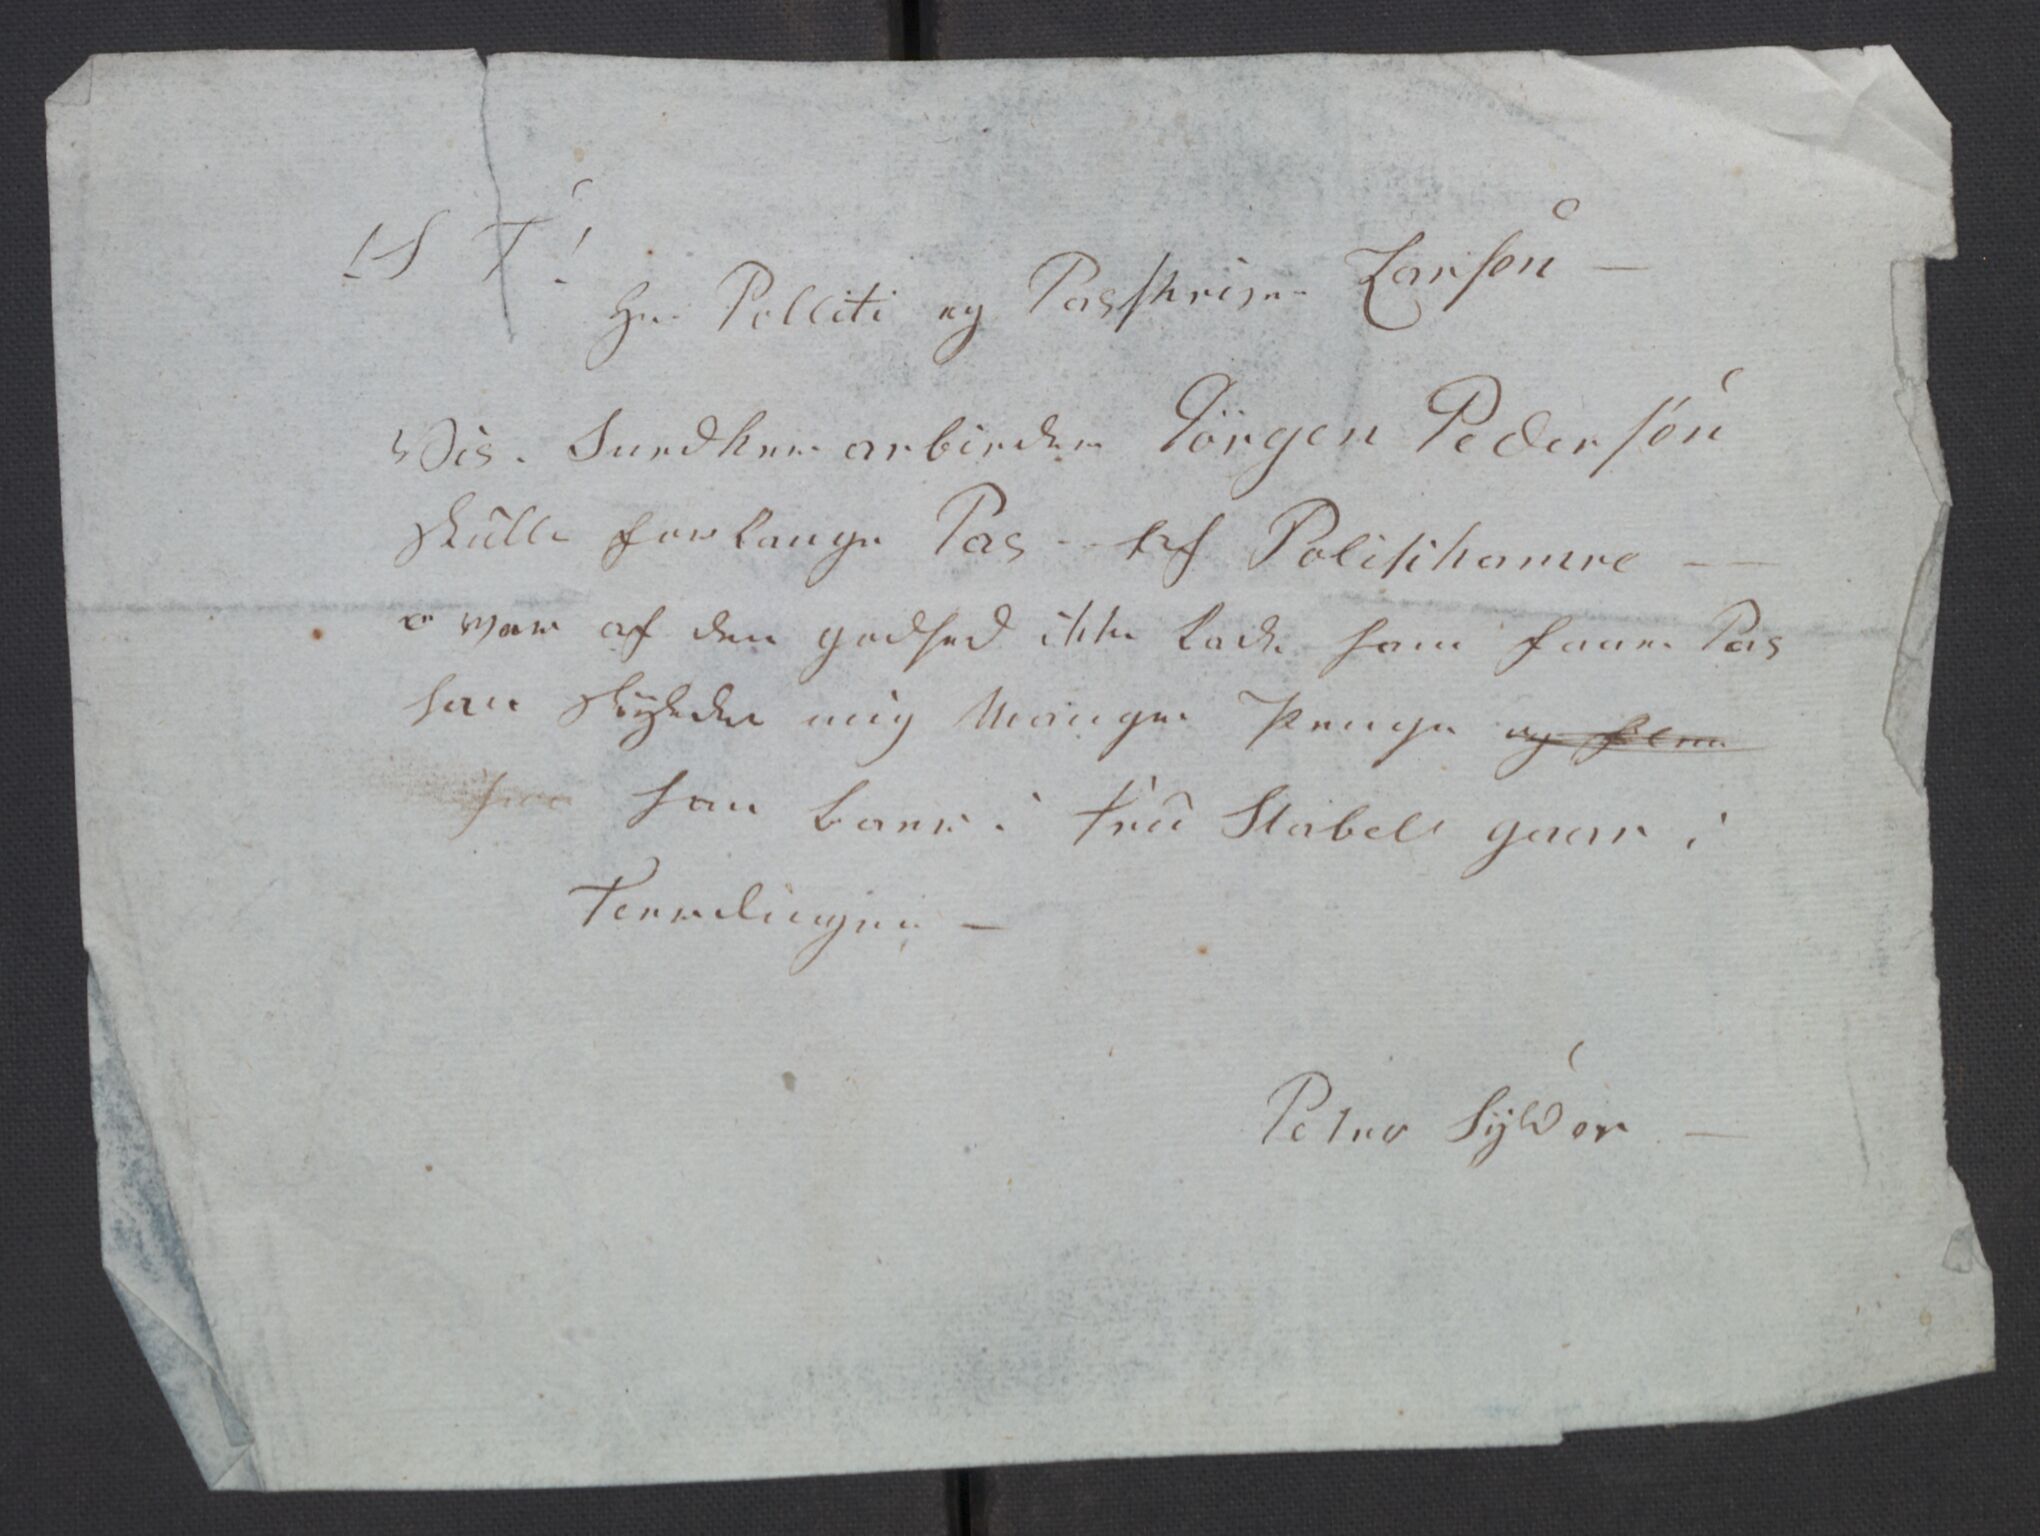 /S T!
Hr. Polliti og Passkriver Larsøn —
Vis. Snedker arbeider Jörgen Pedersön
skulle forlange Pas - af Politikamre —
e vær af den godhed ikke lade ham faae Pas
han skylder mig Mange Penge og flere
han boer i Fru Stabels gaar i
Tervelingen —
Peter Sylvor —